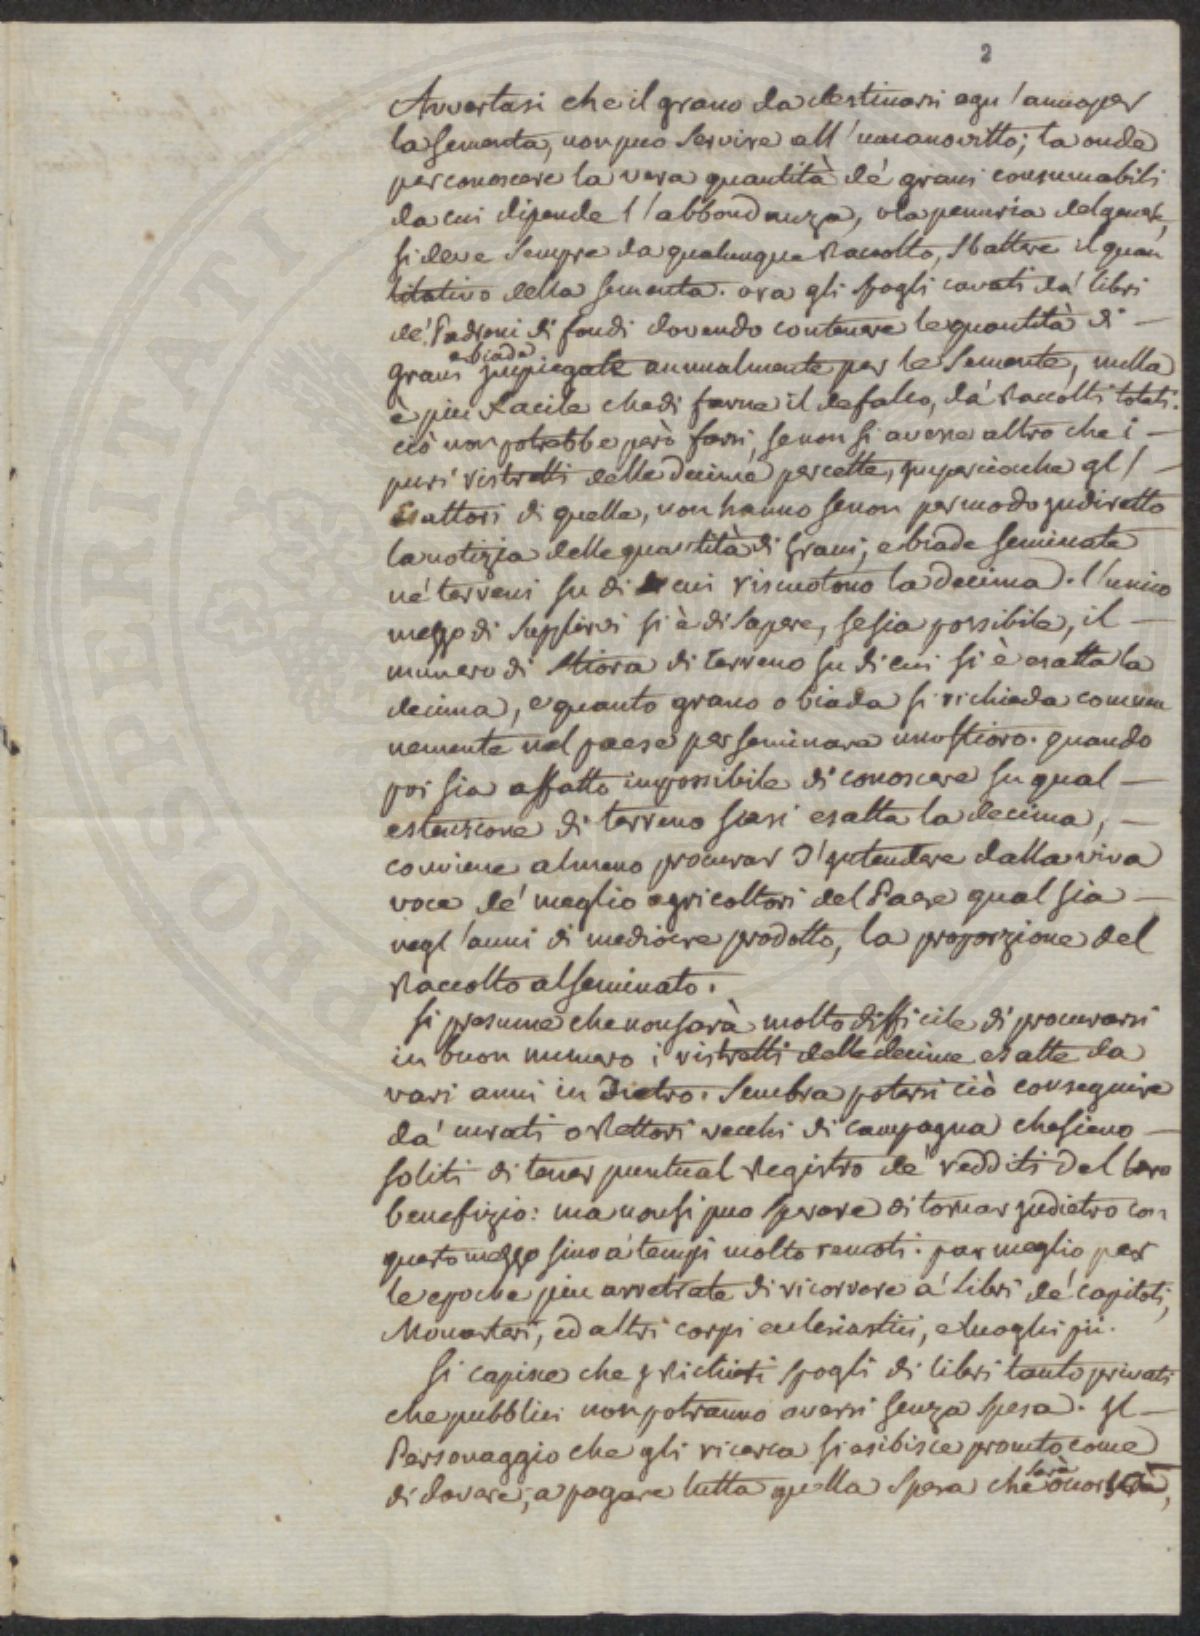 2
Avvertasi che il grano da destinarsi ogn'anno per
la sementa, non puo servire all'umano vitto; la onde
per conoscere la vera quantità de' grani consumabili
da cui dipende l'abbondanza, o la penuria del genere,
si deve sempre da qualunque raccolto, sbattere il quan
titativo della sementa. ora gli spogli cavati da' libri
de' Padroni di fondi dovendo contenere le quantità di —
grani e biade impiegate annualmente per le semente, nulla
è piu facile che di farne il defalco, da' raccolti totali.
ciò non potrebbe però farsi, se non si avesse altro che i —
puri ristretti delle Decime percette, imperciocche gl' —
Esattori di quelle, non hanno se non per modo indiretto
la notizia delle quantità di grani, e biade seminate
ne' terreni su di cui riscuotono la Decima. l'unico
mezzo di supplirvi si è di sapere, se sia possibile, il —
numero di stiora di terreno su di cui si è esatta la
decima, e quanto grano o biada si richieda comu
nemente nel paese per seminare uno stioro. quando
poi sia affatto impossibile di conoscere su qual —
estensione di terreno siasi esatta la decima, —
conviene almeno procurar d'intendere dalla viva
voce de' meglio agricoltori del Paese qual sia —
negl'anni di mediocre prodotto, la proporzione del
raccolto al seminato.
si presume che non sarà molto difficile di procurarsi
in buon numero i ristretti delle decime esatte da
vari anni in Dietro. Sembra potersi ciò conseguire
da' curati o Rettori vecchi di campagna che sieno —
soliti di tener puntual registro de' redditi del loro
benefizio: ma non si puo sperare di tornar indietro con
questo mezzo sino a' tempi molto remoti. par meglio per
le epoche piu arretrate di ricorrere a' libri de' capitoli,
Monasteri, ed altri corpi eclesiastici, e luoghi pii.
Si capisce che i richiesti spogli di libri tanto privati
che pubblici non potranno aversi senza spesa. Il —
Personaggio che gli ricerca si esibisce pronto come
di dovere, a pagare tutta quella spesa che sarà